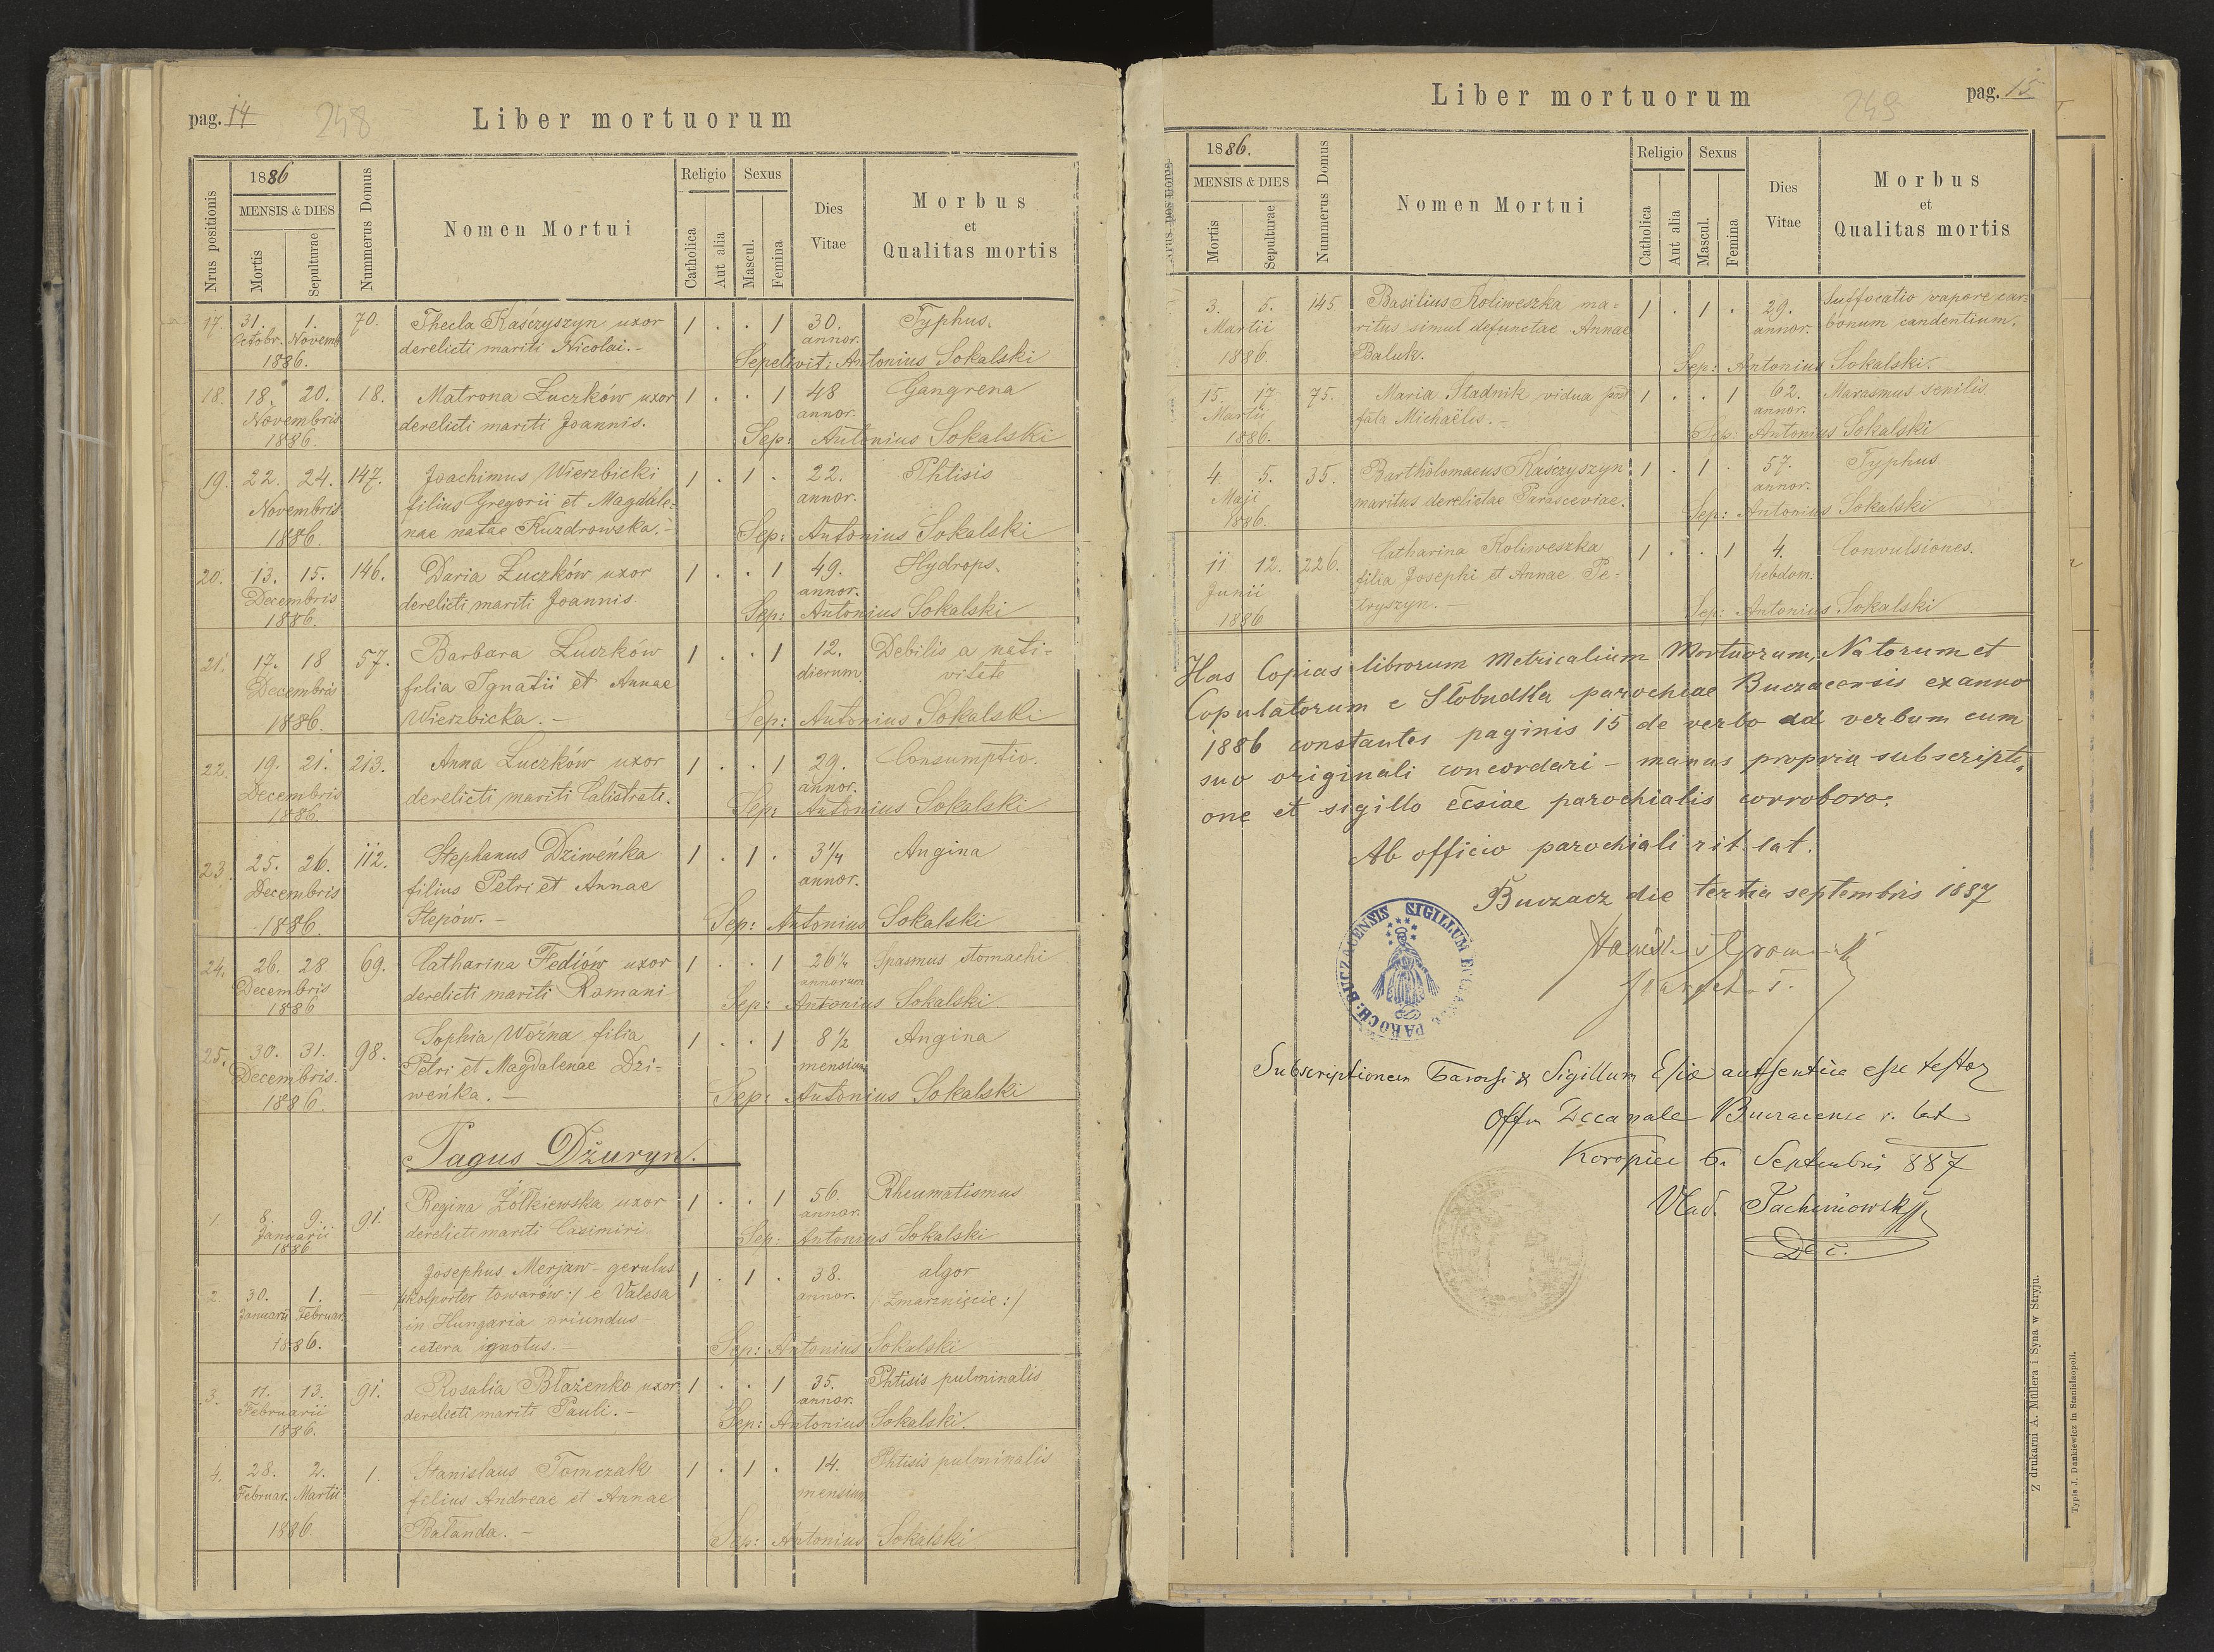 pag. 14
248
Liber mortuorum
Nrus positionis
1886
MENSIS & DIES
Mortis
Sepulturae
Nummerus Domus
Nomen Mortui
Religio
Catholica
Aut alia
Sexus
Mascul.
Femina
Dies
Vitae
Morbus
et
Qualitas mortis
17. 31. 1. 70. Thecla Kaśczyszyn uxor 1 . . 1 30. Typhus.
Octobr. Novemb. derelicti mariti Nicolai. - annor.
1886. Sepelivit: Antonius Sokalski
18. 18. 20. 18. Matrona Łuczków uxor 1 . . 1 48 Gangrena
Novembris derelicti mariti Joannis. annor.
1886. Sep: Antonius Sokalski
19. 22. 24. 147. Joachimus Wierzbicki 1 . 1 . 22. Phtisis
Novembris filius Gregorii et Magdale= annor.
1886. nae natae Kuzdrowska. - Sep: Antonius Sokalski
20. 13. 15. 146. Daria Łuczków uxor 1 . . 1 49. Hydrops.
Decembris derelicti mariti Joannis. annor.
1886. Sep: Antonius Sokalski
21. 17. 18 57. Barbara Łuczków 1 . . 1 12. Debilis a nati=
Decembris filia Ignatii et Annae dierum vitate
1886. Wierzbicka. - Sep: Antonius Sokalski
22. 19. 21. 213. Anna Łuczków uxor 1 . . 1 29. Consumptio.
Decembris derelicti mariti Calistrati. annor.
1886. Sep: Antonius Sokalski
23. 25. 26. 112. Stephanus Dziweńka 1 . 1 . 3 1/4 Angina
Decembris filius Petri et Annae annor.
1886. Stepów. - Sep: Antonius Sokalski
24. 26. 28 69. Catharina Fediów uxor 1 . . 1 26 1/2 Spasmus stomachi
Decembris derelicti mariti Romani annorum
1886 Sep: Antonius Sokalski
25. 30. 31. 98. Sophia Woźna filia 1 . . 1 8 1/2 Angina
Decembris. Petri et Magdalenae Dzi= mensium
1886. weńka. - Sep: Antonius Sokalski
Pagus Dżuryn.
1. 8. 9. 91. Regina Żółkiewska uxor 1 . . 1 56. Rheumatismus
Januarii derelicti mariti Casimiri. annor.
1886 Sep: Antonius Sokalski
2. 30. 1. — Josephus Merjaw - gerulus 1 . 1 . 38. algor
Januarii Februar. /:kolporter towarów:/ e Valesa annor. /:Zmarznięcie:/
in Hungaria oriundus -
1886. cetera ignotus. - Sep: Antonius Sokalski
3. 11. 13. 91. Rosalia Błażenko uxor 1 . . 1 35. Phtisis pulminalis
Februarii derelicti mariti Pauli. - annor.
1886. Sep: Antonius Sokalski.
4. 28. 2. 1. Stanislaus Tomczak 1 . 1 . 14. Phtisis pulminalis
Februar. Martii filius Andreae et Annae mensium
1886 Bałanda. - Sep: Antonius Sokalski
Liber mortuorum
249
pag. 15
1886.
MENSIS & DIES
Mortis
Sepulturae
Nummerus Domus
Nomen Mortui
Religio
Catholica
Aut alia
Sexus
Mascul.
Femina
Dies
Vitae
Morbus
et
Qualitas mortis
3. 5. 145 Basilius Koliweszka ma= 1 . 1 . 29. Suffocatio vapore car=
Martii ritus simul defunctae Annae annor. bonum candentium.
1886 Baluk. Sep: Antonius Sokalski.
15. 17. 75. Maria Stadnik vidua 1 . . 1 62. Marasmus senilis
Martii fala Michaëlis. - annor.
1886. Sep: Antonius Sokalski
4 5. 35. Bartholomaeus Kaśczyszyn 1 . 1 . 57. Typhus
Maji maritus derelictae Parasceviae. annor.
1886. Sep: Antonius Sokalski
11 12. 226. Catharina Koliweszka 1 . . 1 4. Convulsiones.
Junii filia Josephi et Annae Pe= hebdom:
1886 tryszyn. - Sep: Antonius Sokalski
Has Copias librorum Metricalium Mortuorum, Natorum et
Copulatorum e Słobudka parochiae Buczacensis ex anno
1886 constantes paginis 15 de verbo ad verbum cum
suo originali concordari - manus propria subscripti=
one et sigillo ecsiae parochialis corroboro.
Ab officio parochiali rit. lat.
Buczacz die tertia septembris 1887
SIGILLUM ECCLESIAE PAROCH: BUCZACENSIS
Subscriptionem & Sigillum authentice esse testor
Offm Decanale Buczacense r. lat
Koropiec 6. Septembris 887
Vlad.
Dec.
Z drukarni A. Müllera i Syna w Stryju.
Typis J. Dankiewicz in Stanislaopoli.